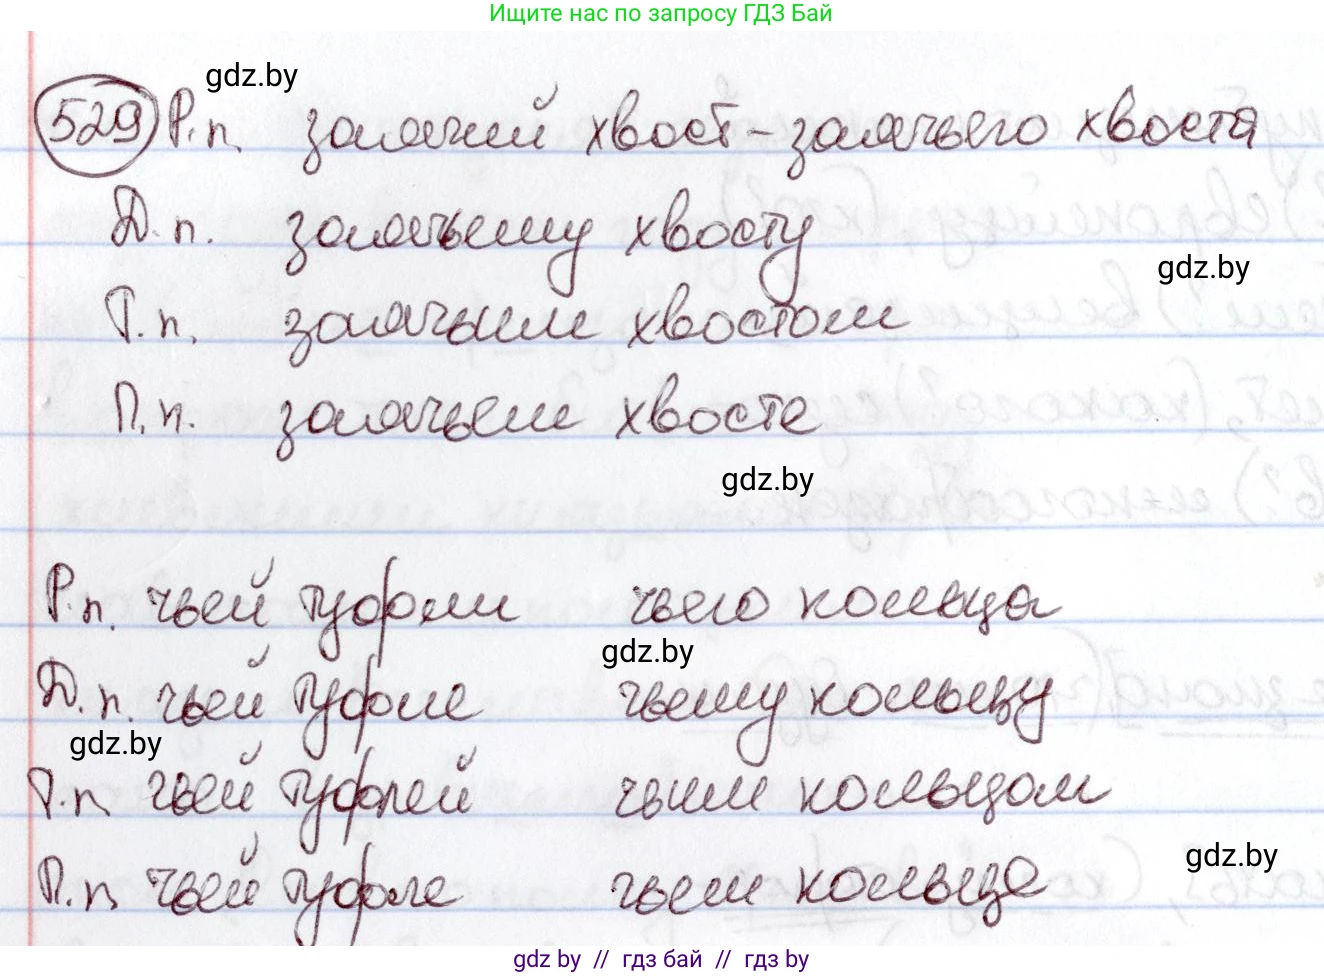 Ищите нас по запросу ГДЗ Бай
gdz.by
529 Р.п. заячий хвост – заячьего хвоста
Д.п. заячьему хвосту
gdz.by
Т.п. заячьим хвостом
П.п. заячьем хвосте
gdz.by
Р.п. чьей туфли чьего кольца
gdz.by
Д.п. чьей туфле чьему кольцу
gdz.by
Т.п. чьей туфлей чьим кольцом
gdz.by
П.п. чьей туфле чьем кольце
gdz by // гдз бай // гдз by